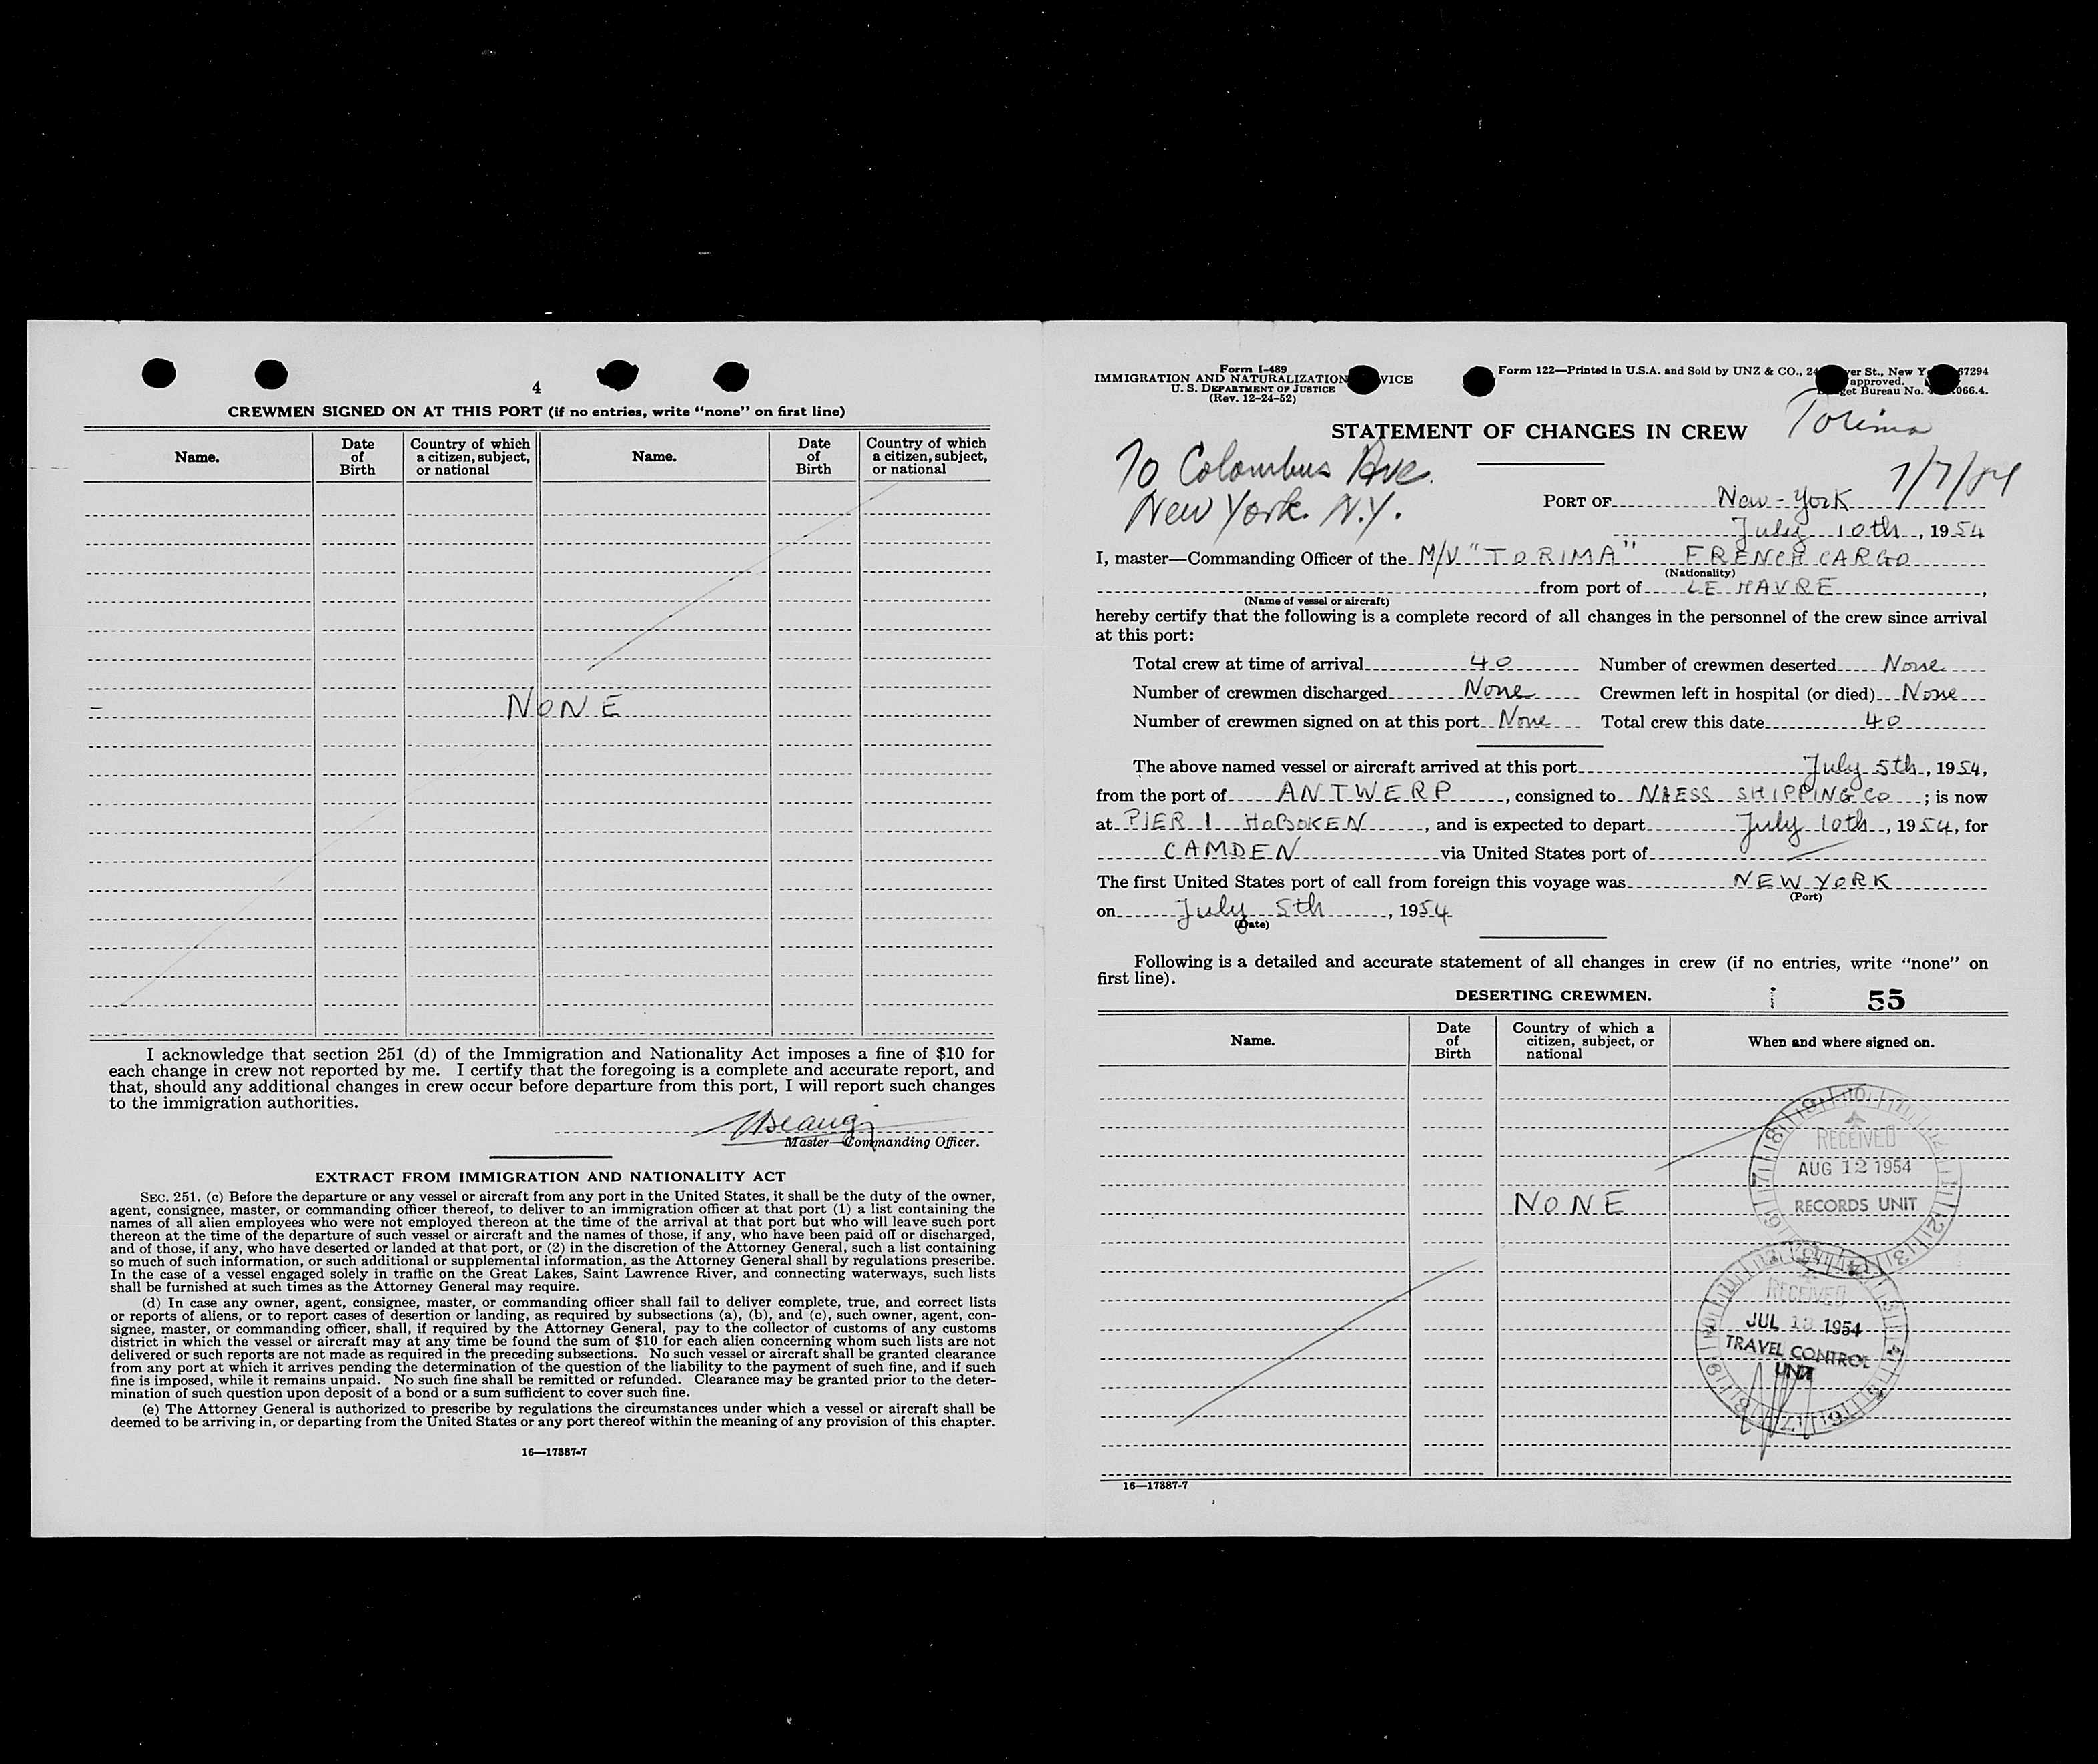 4
CREWMEN SIGNED ON AT THIS PORT (if no entries, write “none” on first line)
Name. Date of Birth Country of which a citizen, subject, or national Name. Date of Birth Country of which a citizen, subject, or national
NONE
I acknowledge that section 251 (d) of the Immigration and Nationality Act imposes a fine of $10 for
each change in crew not reported by me. I certify that the foregoing is a complete and accurate report, and
that, should any additional changes in crew occur before departure from this port, I will report such changes
to the immigration authorities.
Master—Commanding Officer.
EXTRACT FROM IMMIGRATION AND NATIONALITY ACT
SEC. 251. (c) Before the departure or any vessel or aircraft from any port in the United States, it shall be the duty of the owner,
agent, consignee, master, or commanding officer thereof, to deliver to an immigration officer at that port (1) a list containing the
names of all alien employees who were not employed thereon at the time of the arrival at that port but who will leave such port
thereon at the time of the departure of such vessel or aircraft and the names of those, if any, who have been paid off or discharged,
and of those, if any, who have deserted or landed at that port, or (2) in the discretion of the Attorney General, such a list containing
so much of such information, or such additional or supplemental information, as the Attorney General shall by regulations prescribe.
In the case of a vessel engaged solely in traffic on the Great Lakes, Saint Lawrence River, and connecting waterways, such lists
shall be furnished at such times as the Attorney General may require.
(d) In case any owner, agent, consignee, master, or commanding officer shall fail to deliver complete, true, and correct lists
or reports of aliens, or to report cases of desertion or landing, as required by subsections (a), (b), and (c), such owner, agent, con-
signee, master, or commanding officer, shall, if required by the Attorney General, pay to the collector of customs of any customs
district in which the vessel or aircraft may at any time be found the sum of $10 for each alien concerning whom such lists are not
delivered or such reports are not made as required in the preceding subsections. No such vessel or aircraft shall be granted clearance
from any port at which it arrives pending the determination of the question of the liability to the payment of such fine, and if such
fine is imposed, while it remains unpaid. No such fine shall be remitted or refunded. Clearance may be granted prior to the deter-
mination of such question upon deposit of a bond or a sum sufficient to cover such fine.
(e) The Attorney General is authorized to prescribe by regulations the circumstances under which a vessel or aircraft shall be
deemed to be arriving in, or departing from the United States or any port thereof within the meaning of any provision of this chapter.
16—17387-7
Form I-489
IMMIGRATION AND NATURALIZATION VICE
U. S. DEPARTMENT OF JUSTICE
(Rev. 12-24-52)
Form 122—Printed in U.S.A. and Sold by UNZ & CO., 24 er St., New Y 67294
approved.
et Bureau No. 066.4.
Torima
STATEMENT OF CHANGES IN CREW
70 Colombus Ave.
New York N.Y.
PORT OF New-York
July 10th, 1954
I, master—Commanding Officer of the M/V "TORIMA" FRENCH CARGO
(Nationality)
from port of LE HAVRE,
(Name of vessel or aircraft)
hereby certify that the following is a complete record of all changes in the personnel of the crew since arrival
at this port:
Total crew at time of arrival 40 Number of crewmen deserted None
Number of crewmen discharged None Crewmen left in hospital (or died) None
Number of crewmen signed on at this port None Total crew this date 40
The above named vessel or aircraft arrived at this port July 5th, 1954,
from the port of ANTWERP, consigned to NAESS SHIPPING Co; is now
at PIER 1 HOBOKEN, and is expected to depart July 10th, 1954, for
CAMDEN via United States port of
The first United States port of call from foreign this voyage was NEW YORK
(Port)
on July 5th, 1954
(Date)
Following is a detailed and accurate statement of all changes in crew (if no entries, write “none” on
first line).
DESERTING CREWMEN. 55
Name. Date of Birth Country of which a citizen, subject, or national When and where signed on.
NONE
RECEIVED
AUG 12 1954
RECORDS UNIT
RECEIVED
JUL 13 1954
TRAVEL CONTROL
UNIT
16—17387-7